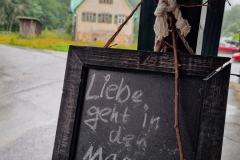 Liebe
geht in
den